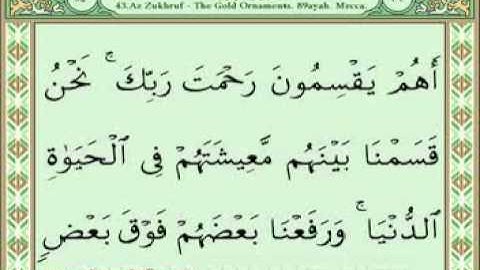 43.Az Zukhruf - The Gold Ornaments. 89ayah. Mecca.
أَهُمْ يَقْسِمُونَ رَحْمَتَ رَبِّكَ ۚ نَحْنُ
قَسَمْنَا بَيْنَهُم مَّعِيشَتَهُمْ فِى ٱلْحَيَوٰةِ
ٱلدُّنْيَا ۚ وَرَفَعْنَا بَعْضَهُمْ فَوْقَ بَعْضٍ